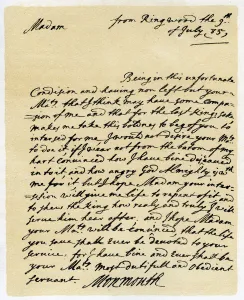 Madam
from Ringwood the 9th
of July, 85
Being in this unfortunate
Condition and having non left but your
Maty. that I think may have some compa-
=sion of me and that for the last Kings sake
makes me take this boldnes to beg of you to
intersed for me, I would not desire your Maty
to doe it if I wear not from the botom of my
hart convinced how I have bine disceaved
in to it and how angry God Almighty is with
me for it but I hope Madam your inter-
sesion will give me life to repent of it and
to shew the King how realy and truly I will
serve him hear after, and I hope Madam
your Maty will be convinced that the life
you save shall Ever be devoted to your
service, for I have bine and Ever shall be
your Matys Most dutifull and Obedient
servant Monmouth